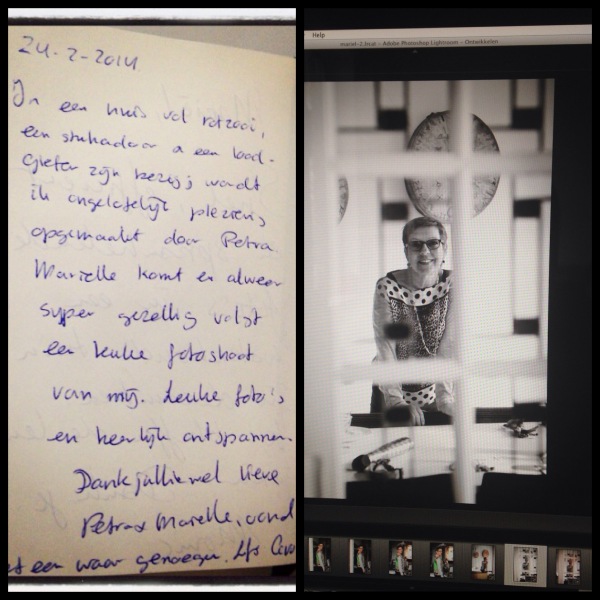 24-2-2014
In een huis vol rotzooi,
een stukadoor & een lood-
gieter zijn bezig; wordt
ik ongelofelijk plezierig
opgemaakt door Petra
Marielle komt en alweer
super gezellig volgt
een leuke fotoshoot
van mij. Leuke foto's
en heerlijk ontspannen.
Dank jullie wel lieve
Petra & Marielle, vond
het een waar genoegen. Lfs
Help
- Adobe Photoshop Lightroom - Ontwikkelen